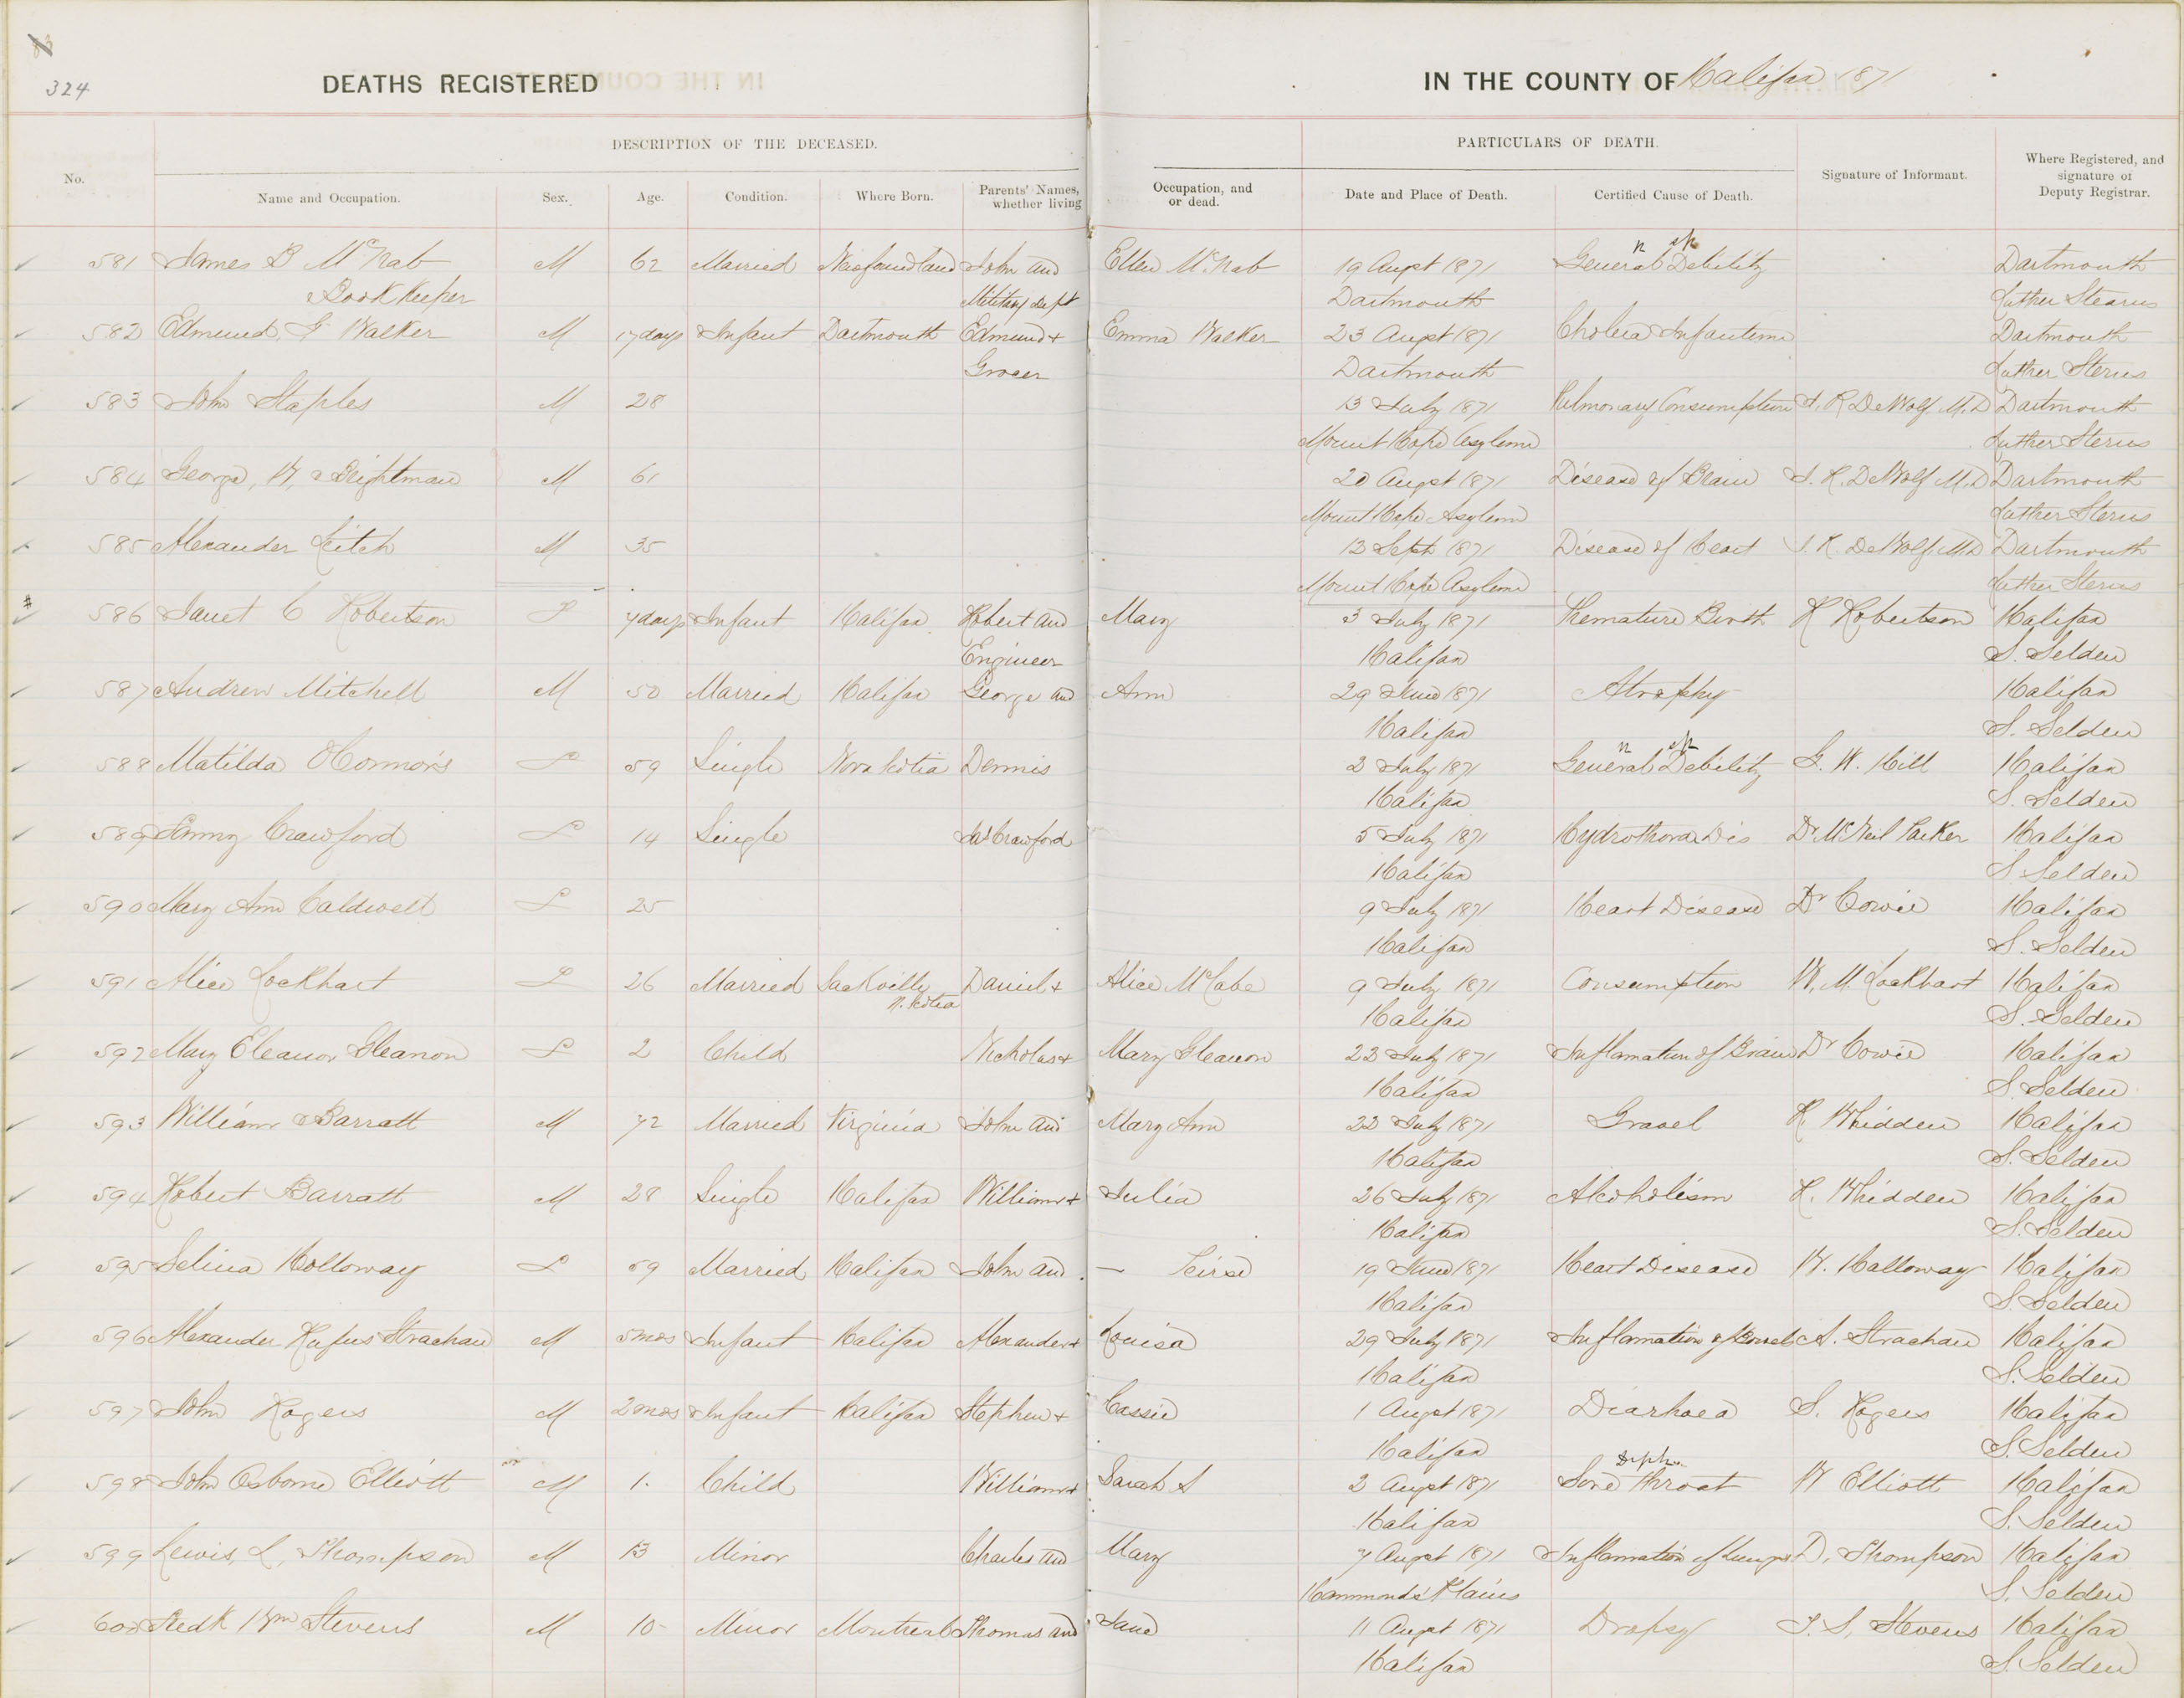 324
DEATHS REGISTERED IN THE COUNTY OF Halifax 1871
DESCRIPTION OF THE DECEASED. PARTICULARS OF DEATH.
No. Name and Occupation. Sex. Age. Condition. Where Born. Parents' Names, Occupation, and Date and Place of Death. Certified Cause of Death. Signature of Informant. Where Registered, and
whether living or dead. signature of
Deputy Registrar.
581 James B McNab M 62 Married Newfoundland John and Ellen McNab 19 Augst 1871 General Debility Dartmouth
Book Keeper Military dept Dartmouth Luther Stearns
582 Edmund G Walker M 17 days Infant Dartmouth Edmund + Emma Walker 23 Augst 1871 Cholera Infantum Dartmouth
Grocer Dartmouth Luther Sterns
583 John Staples M 28 13 July 1871 Pulmonary Consumption J. R DeWolf M.D Dartmouth
Mount Hope Asylum Luther Sterns
584 George, W, Brightman M 61 20 Augst 1871 Disease of Brain J. R. DeWolf M.D Dartmouth
Mount Hope Asylum Luther Sterns
585 Alexander Leitch M 35 13 Sept 1871 Disease of Heart J. R. DeWolf M.D Dartmouth
Mount Hope Asylum Luther Sterns
586 Janet C Robertson F 7 days Infant Halifax Robert and Mary 3 July 1871 Premature Birth R Robertson Halifax
Engineer Halifax S. Selden
587 Andrew Mitchell M 50 Married Halifax George and Ann 29 June 1871 Atrophy Halifax
Halifax S. Selden
588 Matilda OConnors F 59 Single Nova Scotia Dennis 2 July 1871 General Debility G. W. Hill Halifax
Halifax S. Selden
589 Crawford F 14 Single Jas Crawford 5 July 1871 Hydrothorax Dis Dr McNeil Parker Halifax
Halifax S Selden
590 Mary Ann Caldwell F 25 9 July 1871 Heart Disease Dr Cowie Halifax
Halifax S. Selden
591 Alice Lockhart F 26 Married Sackville Daniel + Alice McCabe 9 July 1871 Consumption W. M. Lockhart Halifax
N. Scotia Halifax S. Selden
592 Mary Eleanor Gleanon F 2 Child Nicholas + Mary Gleanon 23 July 1871 Inflamation of Brain Dr Cowie Halifax
Halifax S. Selden
593 William Barratt M 72 Married Virginia John and Mary Ann 22 July 1871 Gravel R Whidden Halifax
Halifax S. Selden
594 Robert Barratt M 28 Single Halifax William + Julia 26 July 1871 Alcoholism R. Whidden Halifax
Halifax S. Selden
595 Selina Holloway F 59 Married Halifax John and — 19 June 1871 Heart Disease W. Halloway Halifax
Halifax S. Selden
596 Alexander Rufus Strachan M 5 mos Infant Halifax Alexander + Louisa 29 July 1871 Inflamation of Bowels A. Strachan Halifax
Halifax S. Selden
597 John Rogers M 2 mos Infant Halifax Stephen + Cassie 1 Augst 1871 Diarhoea S. Rogers Halifax
Halifax S. Selden
598 John Osborne Elliott M 1. Child William + Sarah S 2 Augst 1871 Sore Throat W Elliott Halifax
Halifax S. Selden
599 Lewis, L, Thompson M 13 Minor Charles and Mary 7 Augst 1871 Inflamation of Lungs D, Thompson Halifax
Hammonds Plains S. Selden
600 Fredk Wm Stevens M 10 Minor Montreal Thomas and Jane 11 Augst 1871 Dropsy T. S, Stevens Halifax
Halifax S. Selden